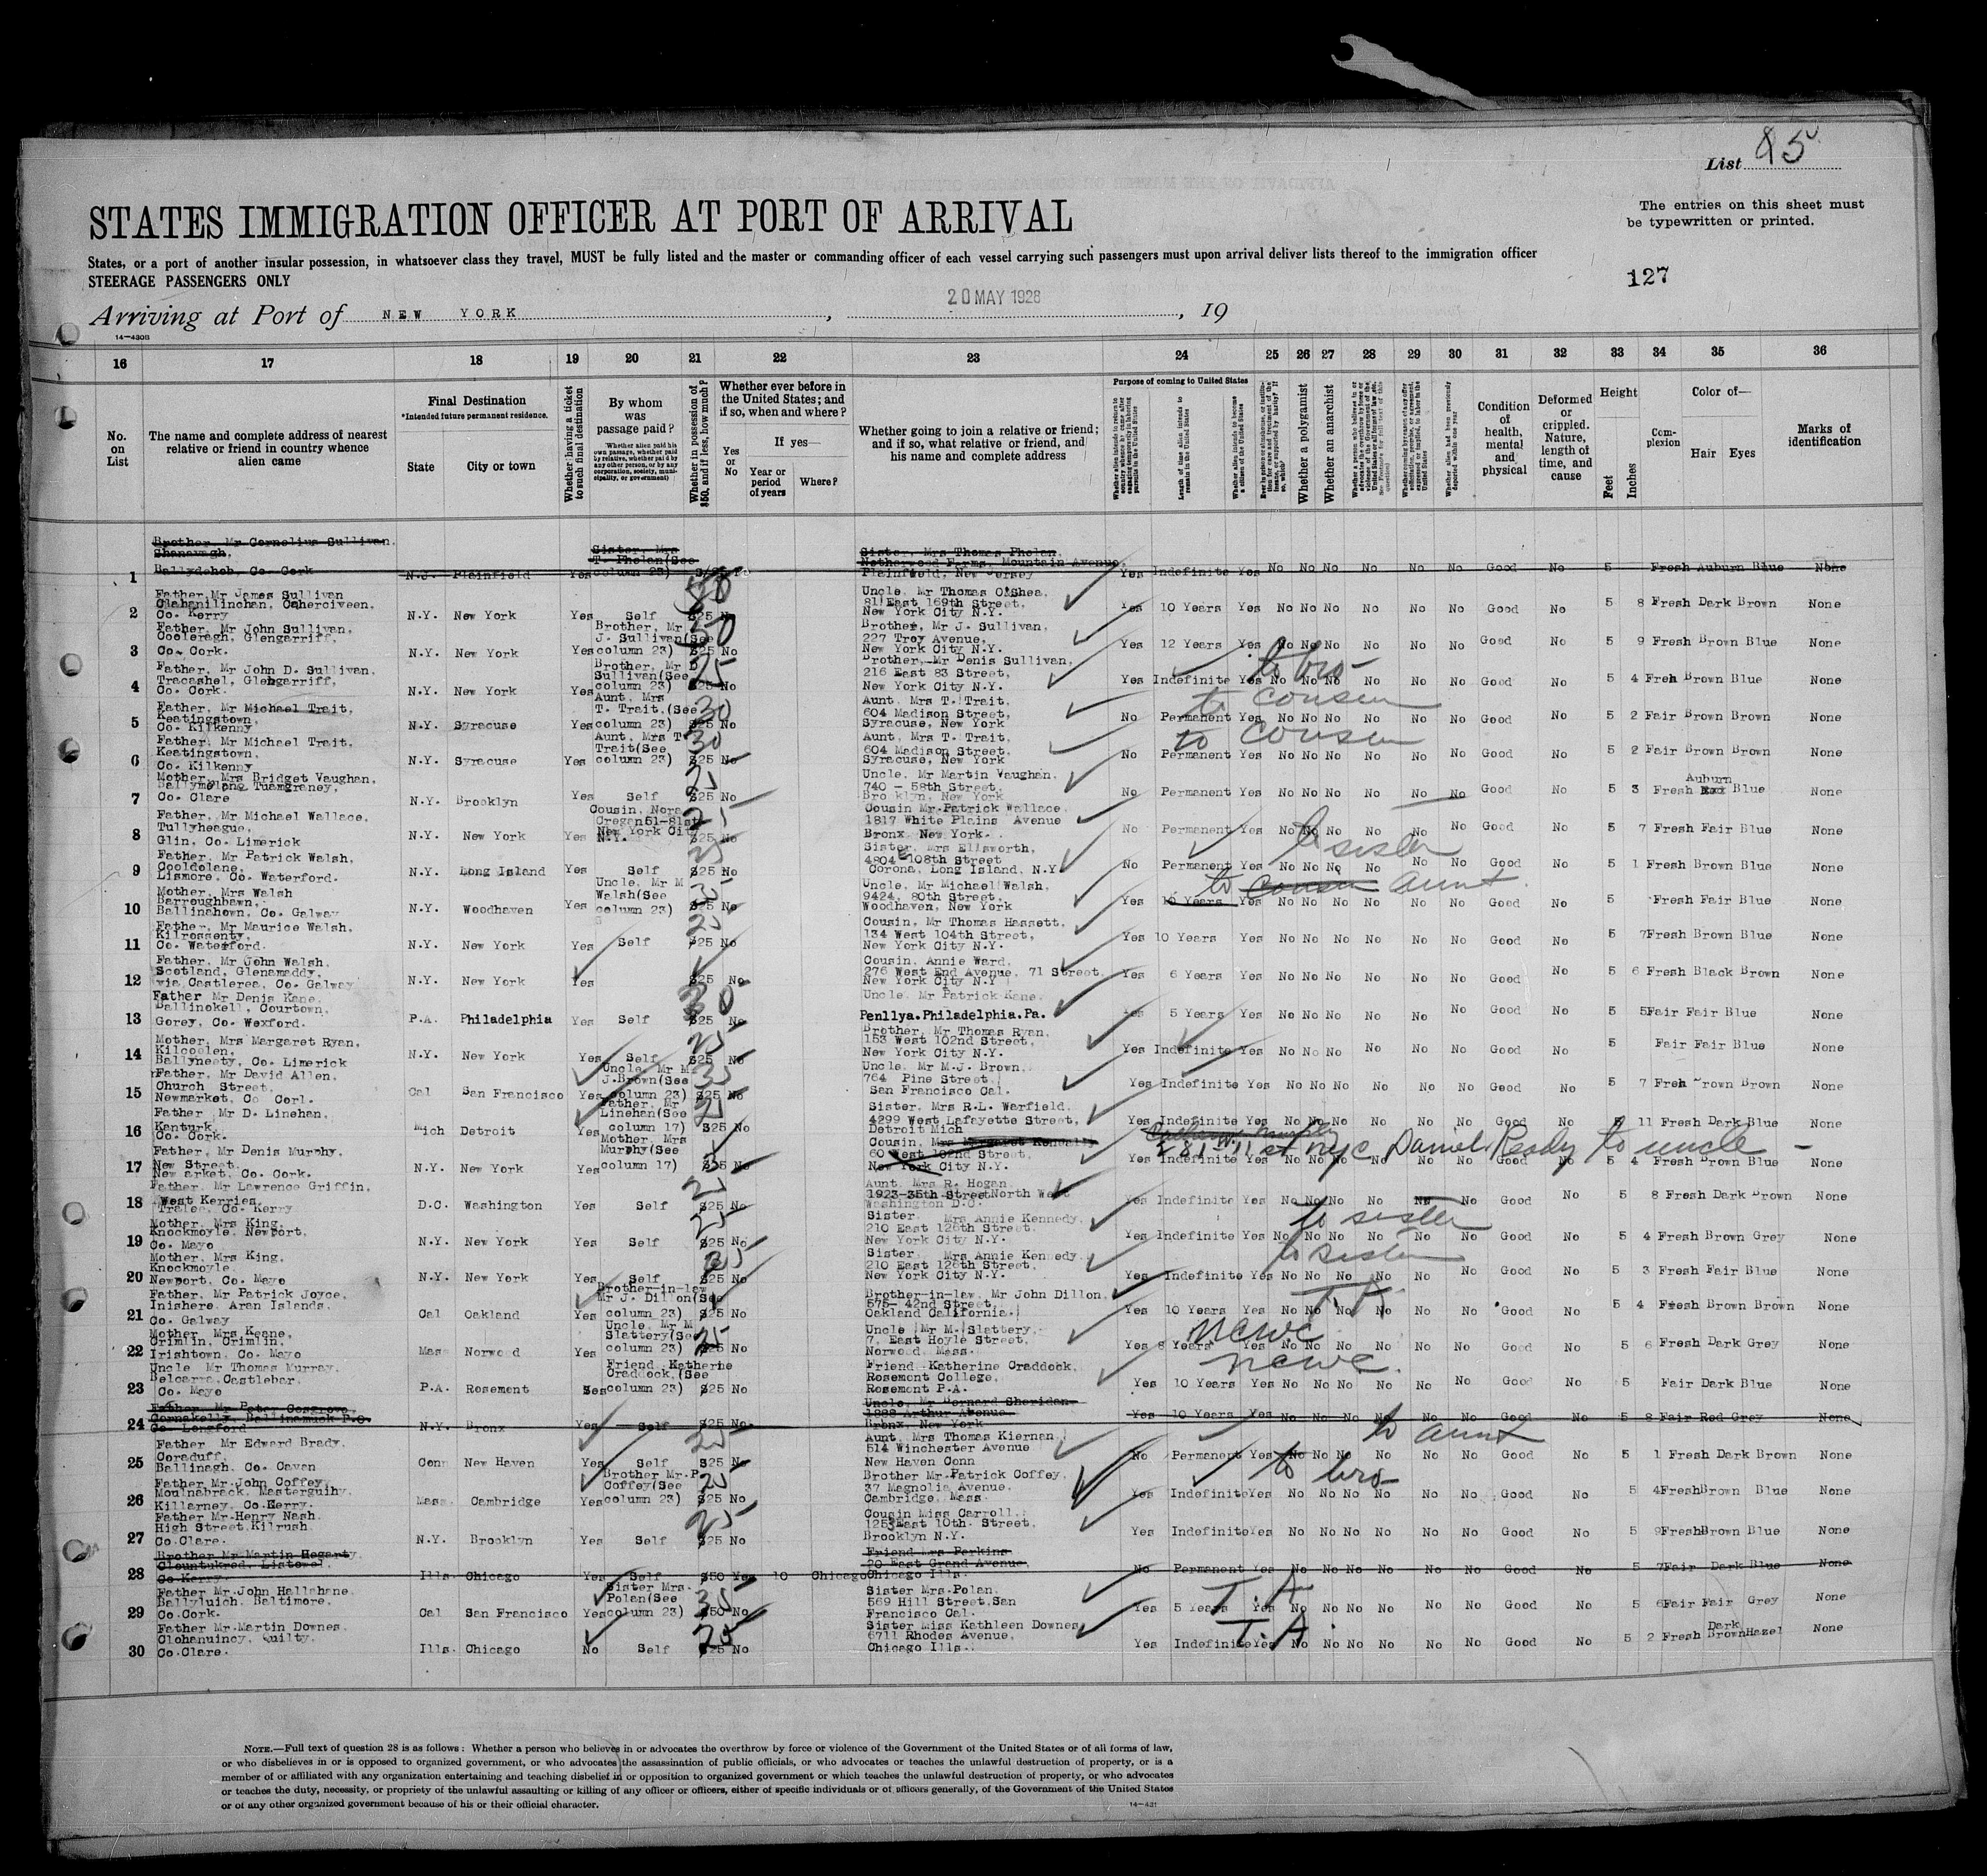 List 85
STATES IMMIGRATION OFFICER AT PORT OF ARRIVAL
The entries on this sheet must
be typewritten or printed.
States, or a port of another insular possession, in whatsoever class they travel, MUST be fully listed and the master or commanding officer of each vessel carrying such passengers must upon arrival deliver lists thereof to the immigration officer
STEERAGE PASSENGERS ONLY
127
20 MAY 1928
Arriving at Port of NEW YORK , , 19
14—430B
16 17 18 19 20 21 22 23 24 25 26 27 28 29 30 31 32 33 34 35 36
No. on List
The name and complete address of nearest relative or friend in country whence alien came
Final Destination
*Intended future permanent residence.
State City or town
Whether having a ticket to such final destination
By whom was passage paid?
Whether in possession of $50, and if less, how much?
Whether ever before in the United States; and if so, when and where?
Yes or No
If yes—
Year or period of years Where?
Whether going to join a relative or friend; and if so, what relative or friend, and his name and complete address
Purpose of coming to United States
Whether a polygamist
Whether an anarchist
Condition of health, mental and physical
Deformed or crippled. Nature, length of time, and cause
Height
Feet Inches
Complexion
Color of—
Hair Eyes
Marks of identification
Brother, Mr Cornelius Sullivan, Sister, Mrs Sister, Mrs Thomas Phelan,
Shanavagh, T. Phelan(See Netherwood Farms, Mountain Avenue,
1 Ballydehob, Co. Cork N.J. Plainfield Yes column 23) Plainfield, New Jersey Yes Indefinite Yes No No No No No No Good No 5 Fresh Auburn Blue None
Father, Mr James Sullivan 50 Uncle, Mr Thomas O'Shea,
Caherciveen, 81 East 169th Street,
2 Co. Kerry N.Y. New York Yes Self $25 No New York City N.Y. Yes 10 Years Yes No No No No No No Good No 5 8 Fresh Dark Brown None
Father, Mr John Sullivan, Brother, Mr 50 Brother, Mr J. Sullivan,
Cooleragh, Glengarriff, J. Sullivan(See 227 Troy Avenue,
3 Co. Cork. N.Y. New York Yes column 23) $25 No New York City N.Y. Yes 12 Years Yes No No No No No No Good No 5 9 Fresh Brown Blue None
Father, Mr John D. Sullivan, Brother, Mr D 25 Brother, Mr Denis Sullivan, to bro
Tracashel, Glengarriff, Sullivan(See 216 East 83 Street,
4 Co. Cork. N.Y. New York Yes column 23) $25 No New York City N.Y. Yes Indefinite Yes No No No No No No Good No 5 4 Freh Brown Blue None
Father, Mr Michael Trait, Aunt, Mrs 30 Aunt, Mrs T. Trait, to cousin
Keatingstown, T. Trait,(See 604 Madison Street,
5 Co. Kilkenny N.Y. Syracuse Yes column 23) $25 No Syracuse, New York No Permanent Yes No No No No No No Good No 5 2 Fair Brown Brown None
Father, Mr Michael Trait, Aunt, Mrs T 30 Aunt, Mrs T. Trait, to cousin
Keatingstown, Trait(See 604 Madison Street,
6 Co. Kilkenny N.Y. Syracuse Yes column 23) $25 No Syracuse, New York No Permanent Yes No No No No No No Good No 5 2 Fair Brown Brown None
Mother, Mrs Bridget Vaughan, 25 Uncle, Mr Martin Vaughan, Auburn
Tuamgraney, 740 - 58th Street,
7 Co. Clare N.Y. Brooklyn Yes Self $25 No Brooklyn, New York No Permanent Yes No No No No No No Good No 5 3 Fresh Blue None
Father, Mr Michael Wallace, Cousin, Nora 25 Cousin Mr Patrick Wallace,
Tullyheague, Cregan 51-81st 1817 White Plains Avenue
8 Glin, Co. Limerick N.Y. New York Yes New York City N.Y. $25 No Bronx New York. No Permanent Yes No No No No No No Good No 5 7 Fresh Fair Blue None
Father, Mr Patrick Walsh, 25 Sister, Mrs Ellsworth, to sister
Cooldelane, 4804 108th Street
9 Lismore, Co. Waterford. N.Y. Long Island Yes Self $25 No Corona, Long Island, N.Y. No Permanent Yes No No No No No No Good No 5 1 Fresh Brown Blue None
Mother, Mrs Walsh Uncle, Mr M Uncle, Mr Michael Walsh, to cousin aunt
Barroughbawn, Walsh(See 9424, 80th Street,
10 Ballinahown, Co. Galway N.Y. Woodhaven Yes column 23) $25 No Woodhaven, New York Yes 10 Years Yes No No No No No No Good No 5 Fresh Fair Blue None
Father, Mr Maurice Walsh, 25 Cousin, Mr Thomas Hassett,
Kilrossenty, 134 West 104th Street,
11 Co. Waterford. N.Y. New York Yes Self $25 No New York City N.Y. Yes 10 Years Yes No No No No No No Good No 5 7 Fresh Brown Blue None
Father, Mr John Walsh, Cousin, Annie Ward,
Scotland, Glenamaddy, 276 West End Avenue, 71 Street,
12 via Castlerea, Co. Galway N.Y. New York Yes $25 No New York City N.Y Yes 6 Years Yes No No No No No No Good No 5 6 Fresh Black Brown None
Father Mr Denis Kane, 30 Uncle, Mr Patrick Kane,
Ballinokell, Courtown,
13 Gorey, Co. Wexford. P.A. Philadelphia Yes Self $25 No Penllya.Philadelphia.Pa. Yes 5 Years Yes No No No No No No Good No 5 5 Fair Fair Blue None
Mother, Mrs Margaret Ryan, 25 Brother, Mr Thomas Ryan,
Kilcoolen, 153 West 102nd Street,
14 Ballyneety, Co. Limerick N.Y. New York Yes Self $25 No New York City N.Y. Yes Indefinite Yes No No No No No No Good No 5 Fair Fair Blue None
Father, Mr David Allen, Uncle, Mr M 35 Uncle, Mr M.J. Brown,
Church Street, J.Brown(See 764 Pine Street,
15 Newmarket, Co Corl. Cal San Francisco Yes column 23) $25 No San Francisco Cal. Yes Indefinite Yes No No No No No No Good No 5 7 Freh Brown Brown None
Father Mr D. Linehan, Father, Mr Sister, Mrs R.L. Warfield,
Kanturk, Linehan(See 4299 West Lafayette Street,
16 Co. Cork. Mich Detroit Yes column 17) $25 No Detroit Mich Yes Indefinite Yes No No No No No No Good No 5 11 Fresh Dark Blue None
Father, Mr Denis Murphy, Mother, Mrs Cousin, Mrs Margaret Kendally Daniel Ready to uncle
New Street, Murphy(See 60 West 102nd Street,
17 Newmarket, Co. Cork. N.Y. New York Yes column 17) $25 No New York City N.Y. Yes Indefinite Yes No No No No No No Good No 5 4 Fresh Brown Blue None
Father, Mr Lawrence Griffin, 25 Aunt Mrs R. Hogan
West Kerries, 1923-35th Street North West
18 Tralee, Co. Kerry D.C. Washington Yes Self $25 No Washington D.C. Yes Indefinite Yes No No No No No No Good No 5 8 Fresh Dark Brown None
Mother, Mrs King, 25 Sister Mrs Annie Kennedy, to sister
Knockmoyle, Newport, 210 East 126th Street,
19 Co. Mayo N.Y. New York Yes Self $25 No New York City N.Y. Yes Indefinite Yes No No No No No No Good No 5 4 Fresh Brown Grey None
Mother, Mrs King, 25 Sister Mrs Annie Kennedy, to sister
Knockmoyle, 210 East 126th Street,
20 Newport, Co. Mayo N.Y. New York Yes Self $25 No New York City N.Y. Yes Indefinite Yes No No No No No No Good No 5 3 Fresh Fair Blue None
Father, Mr Patrick Joyce, Brother-in-law Brother-in-law, Mr John Dillon, T.A.
Inishere, Aran Islands, Mr J. Dillon(See 575- 42nd Street,
21 Co. Galway Cal Oakland Yes column 23) $25 No Oakland California. Yes 10 Years Yes No No No No No No Good No 5 4 Fresh Brown Brown None
Mother Mrs Keane, Uncle, Mr M 25 Uncle Mr M. Slattery, NCWC
Crimlin, Crimlin, Slattery(See 7, East Hoyle Street,
22 Irishtown, Co. Mayo Mass Norwood Yes column 23) $25 No Norwood, Mass. Yes 8 Years Yes No No No No No No Good No 5 6 Fresh Dark Grey None
Uncle Mr Thomas Murray, Friend, Katherine Friend Katherine Craddock, NCWC.
Belcarra, Castlebar, Craddock,(See Rosemont College,
23 Co. Mayo P.A. Rosement Yes column 23) $25 No Rosemont P.A. Yes 10 Years Yes No No No No No No Good No 5 Fair Dark Blue None
Father, Mr Peter Cosgrove, Uncle, Mr Bernard Sheridan
Cornakelly, Ballinamuck P.O. 1888 Arthur Avenue
24 Co. Longford N.Y. Bronx Yes Self $25 No Bronx New York Yes 10 Years Yes No No No No No No Good No 5 8 Fair Red Grey None
Father Mr Edward Brady, 25 Aunt, Mrs Thomas Kiernan, to aunt
Coraduff, 514 Winchester Avenue
25 Ballinagh, Co. Cavan Conn New Haven Yes Self $25 No New Haven Conn No Permanent Yes No No No No No No Good No 5 1 Fresh Dark Brown None
Father Mr John Coffey, Brother Mr P. 25 Brother Mr Patrick Coffey, to bro
Moulnabrack, Masterguihy, Coffey(See 37 Magnolia Avenue,
26 Killarney, Co.Kerry. Mass. Cambridge Yes column 23) $25 No Cambridge, Mass. Yes Indefinite Yes No No No No No No Good No 5 4 Fresh Brown Blue None
Father Mr Henry Nash, 25 Cousin Miss Carroll,
High Street, Kilrush, 1253 East 10th. Street,
27 Co.Clare. N.Y. Brooklyn Yes Self $25 No Brooklyn N.Y. Yes Indefinite Yes No No No No No No Good No 5 9 Fresh Brown Blue None
Brother Mr Martin Hegarty, Friend Mrs Perkins
Clountubred, Listowel, 20 East Grand Avenue,
28 Co.Kerry. Ills Chicago Yes Self $50 Yes 10 Chicago Chicago Ills. No Permanent Yes No No No No No No Good No 5 7 Fair Dark Blue None
Father Mr John Hallahane, Sister Mrs. 35 Sister Mrs.Polan, T.A
Ballyluich, Baltimore, Polan(See 569 Hill Street, San
29 Co.Cork. Cal San Francisco Yes column 23) $50 No Francisco Cal. Yes 5 Years Yes No No No No No No Good No 5 6 Fair Fair Grey None
Father Mr Martin Downes, Sister Miss Kathleen Downes, T.A. Dark
Clohanuincy, Quilty, 6711 Rhodes Avenue,
30 Co.Clare. Ills. Chicago No Self $25 No Chicago Ills. Yes Indefinite Yes No No No No No No Good No 5 2 Fresh Brown Hazel None
NOTE.—Full text of question 28 is as follows: Whether a person who believes in or advocates the overthrow by force or violence of the Government of the United States or of all forms of law,
or who disbelieves in or is opposed to organized government, or who advocates the assassination of public officials, or who advocates or teaches the unlawful destruction of property, or is a
member of or affiliated with any organization entertaining and teaching disbelief in or opposition to organized government or which teaches the unlawful destruction of property, or who advocates
or teaches the duty, necessity, or propriety of the unlawful assaulting or killing of any officer or officers, either of specific individuals or of officers generally, of the Government of the United States
or of any other organized government because of his or their official character.
14—431